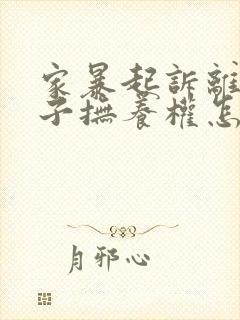 家暴起訴離
子撫養權怎
月邪心